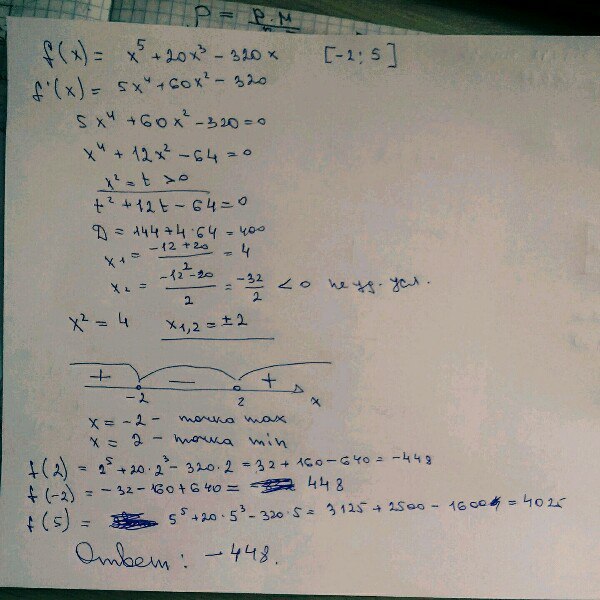 P = P.M
f(x) = x⁵ + 20x³ - 320x [-2; 5]
f'(x) = 5x⁴ + 60x² - 320
5x⁴ + 60x² - 320 = 0
x⁴ + 12x² - 64 = 0
x² = t > 0
t² + 12t - 64 = 0
D = 144 + 4·64 = 400
x₁ = (-12 + 20)/2 = 4
x₂ = (-12 - 20)/2 = -32/2 < 0 не уд. усл.
x² = 4 x₁,₂ = ±2
+ - +
-2 2 x
x = -2 - точка max
x = 2 - точка min
f(2) = 2⁵ + 20·2³ - 320·2 = 32 + 160 - 640 = -448
f(-2) = -32 - 160 + 640 = 448
f(5) = 5⁵ + 20·5³ - 320·5 = 3125 + 2500 - 1600 = 4025
Ответ: -448.